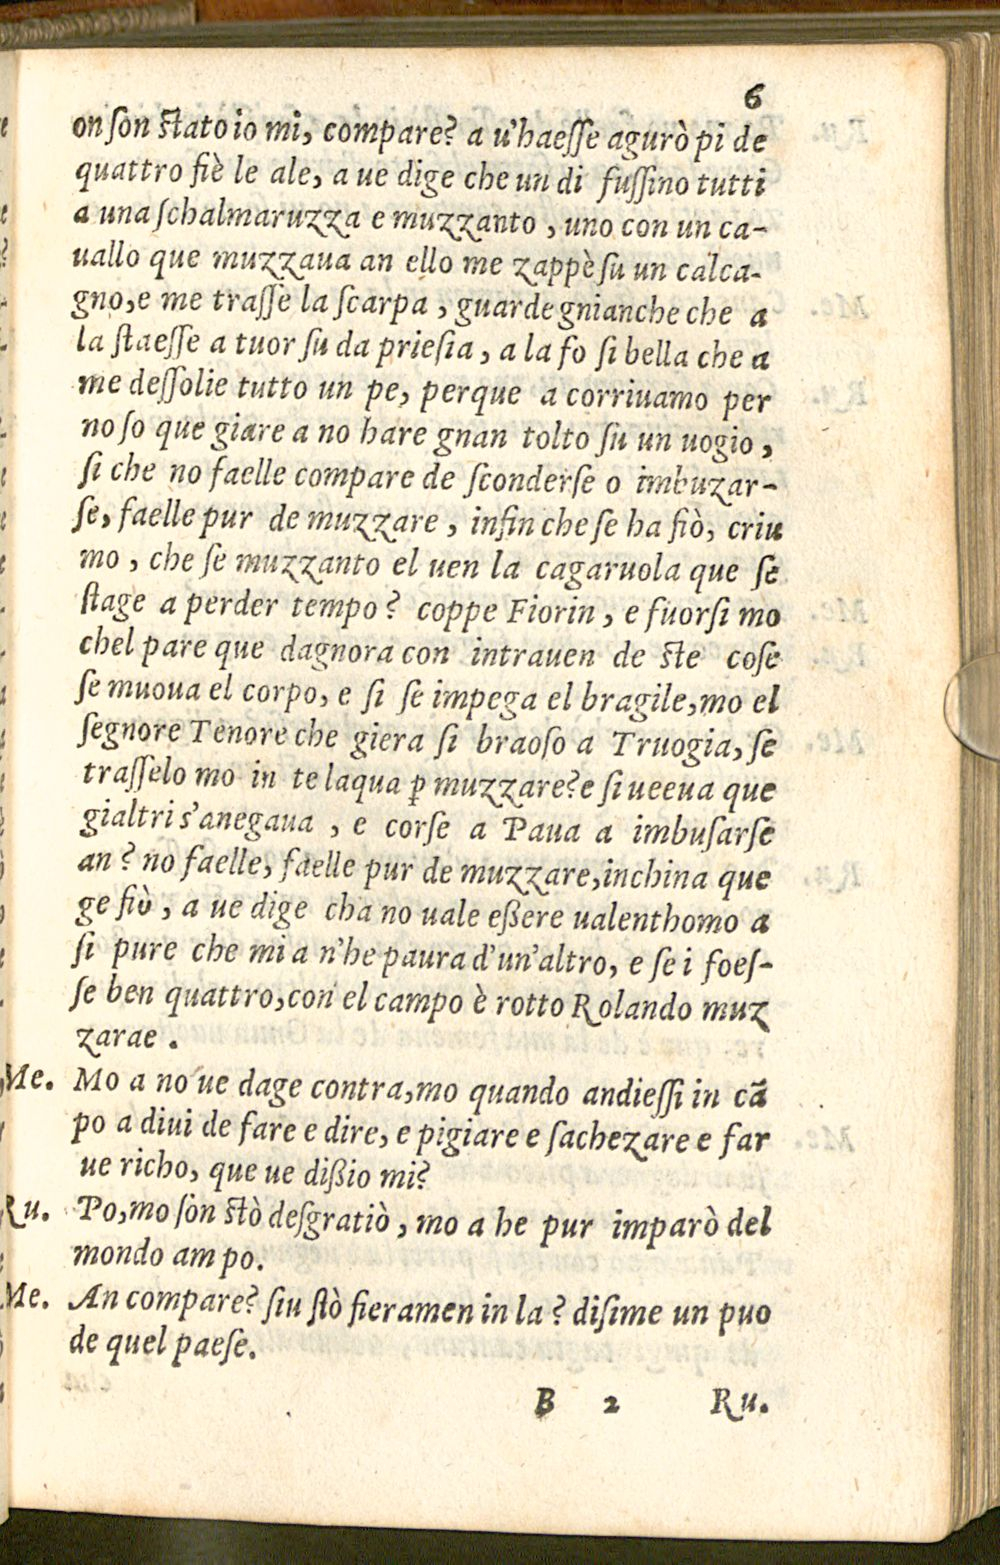 6
on ſon ſtato io mi, compare? a u'haeſſe agurò pi de
quattro fiè le ale, a ue dige che un di fuſſino tutti
a una ſchalmaruzza e muzzanto, uno con un ca-
uallo que muzzaua an ello me zappè ſu un calca-
gno, e me traſſe la ſcarpa, guarde gnianche che a
la ſtaeſſe a tuor ſu da prieſia, a la fo ſi bella che a
me deſſolie tutto un pe, perque a corriuamo per
no ſo que giare a no hare gnan tolto ſu un uogio,
ſi che no faelle compare de ſconderſe o imbuzar-
ſe, faelle pur de muzzare, infin che ſe ha fiò, criu
mo, che ſe muzzanto el uen la cagaruola que ſe
ſtage a perder tempo? coppe Fiorin, e fuorſi mo
chel pare que dagnora con intrauen de ſte coſe
ſe muoua el corpo, e ſi ſe impega el bragile, mo el
ſegnore Tenore che giera ſi braoſo a Truogia, ſe
traſſelo mo in te laqua ꝑ muzzare? e ſi ueeua que
gialtri s'anegaua, e corſe a Paua a imbuſarſe
an? no faelle, faelle pur de muzzare, inchina que
ge fiò, a ue dige cha no uale eßere ualenthomo a
ſi pure che mi a n'he paura d'un'altro, e ſe i foeſ-
ſe ben quattro, con el campo è rotto Rolando muz
zarae.
Me. Mo a no ue dage contra, mo quando andieſſi in cā
po a diui de fare e dire, e pigiare e ſachezare e far
ue richo, que ue dißio mi?
Ru. Po, mo ſon ſtò deſgratiò, mo a he pur imparò del
mondo am po.
Me. An compare? ſiu ſtò fieramen in la? diſime un puo
de quel paeſe.
B 2 Ru.